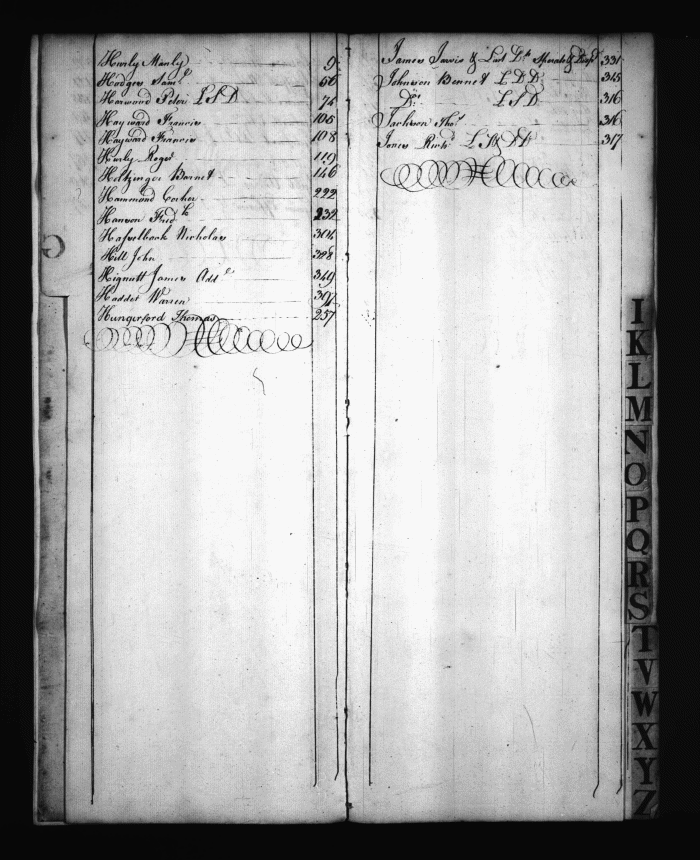 Hurly Manly 9
Hodges Saml 56
Harwood Peleri L S D 74
Hayward Francis 106
Hayward Francis 108
Hurly Roger 119
Heltzinger Barnet 146
Hammond Corker 222
Hanson Fredk 232
Hafselback Nicholas 304
Hill John 328
Hignutt James Add 349
Haddet Warren 307
Hungerford Thomas 257
James Jarvis & Last 331
Johnson Bennet L D D 345
Do L S D 316
Jackson Thos 316
Jones Richd 317
I
K
L
M
N
O
P
Q
R
S
T
V
W
X
Y
Z